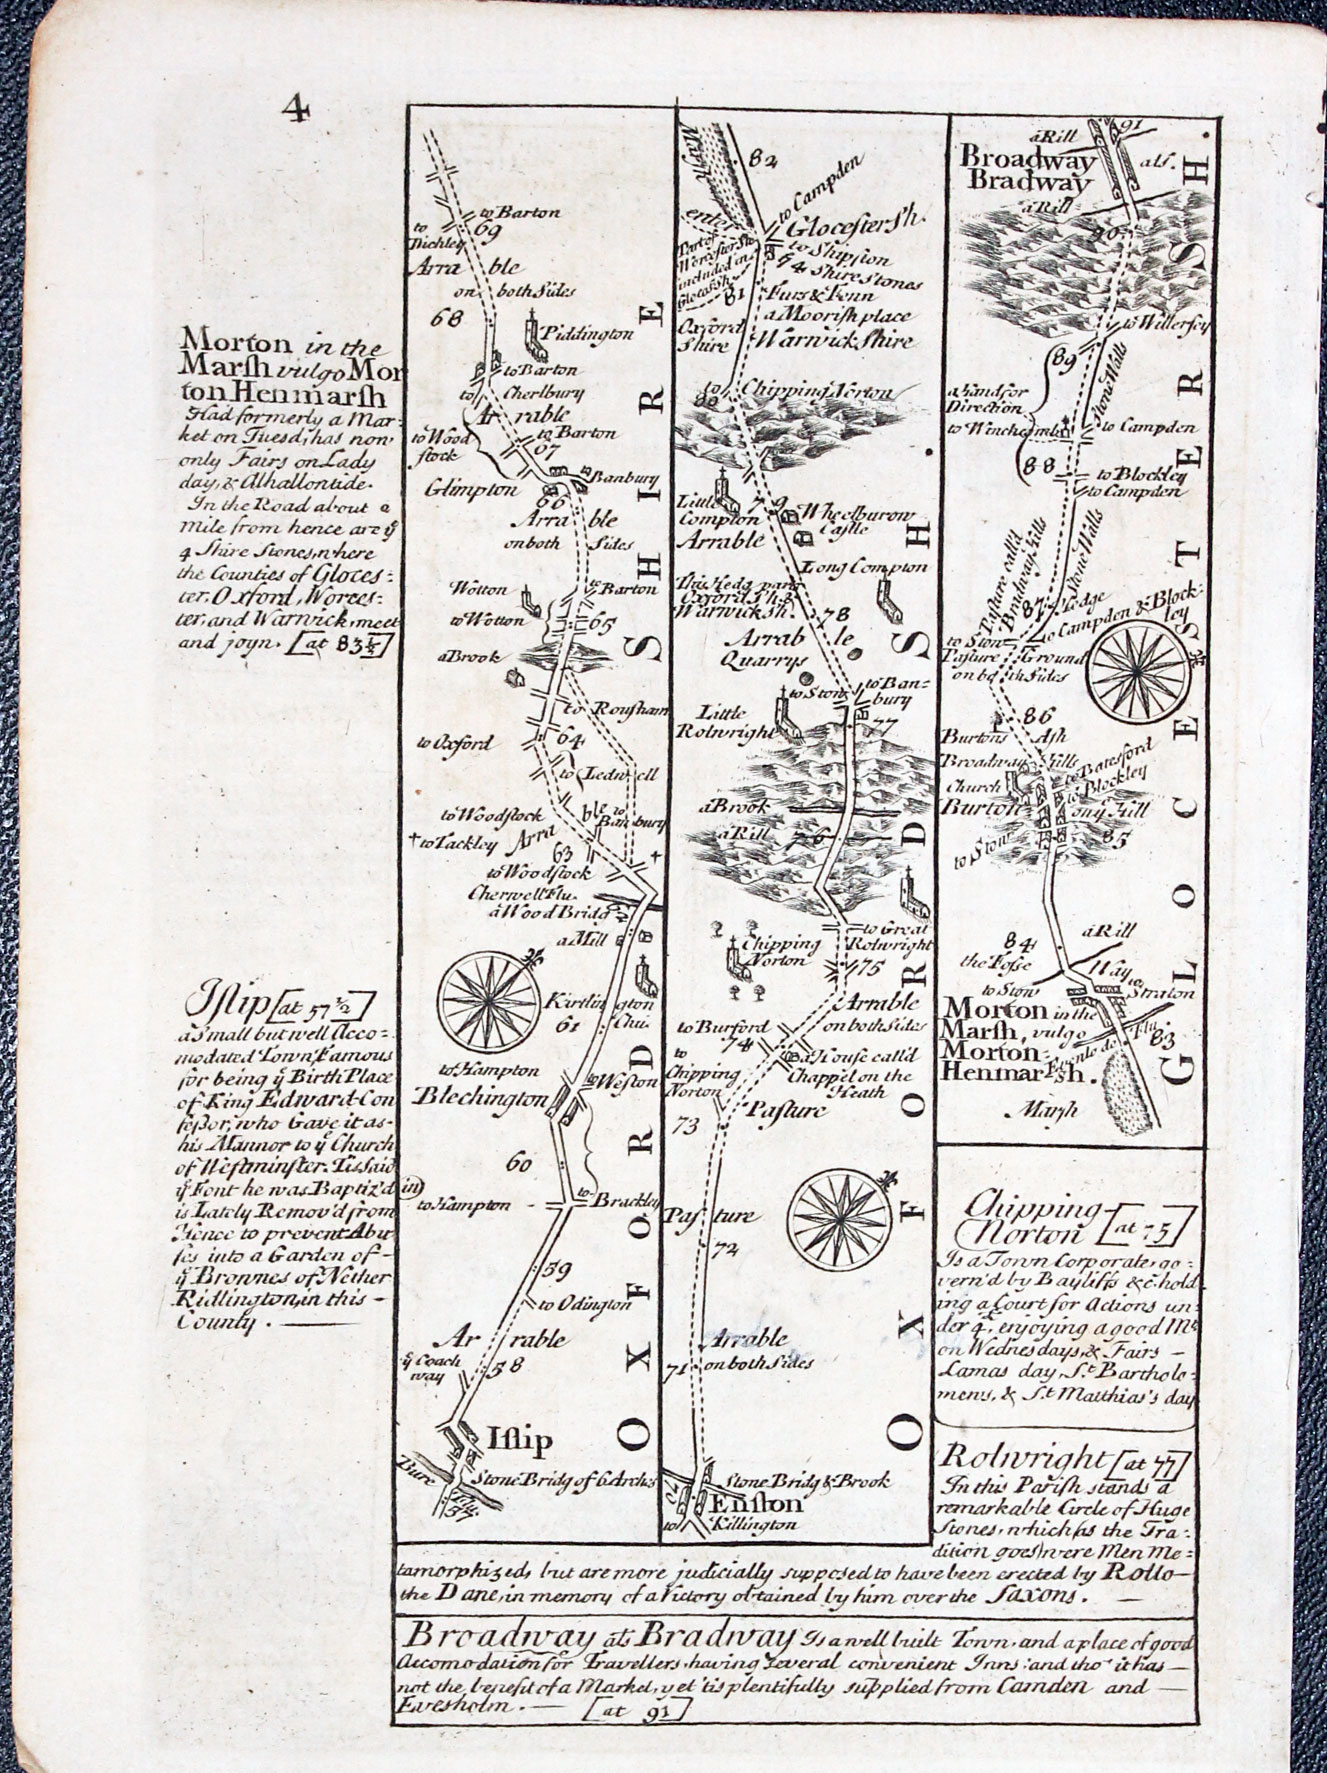 4
Morton in the
Marſh vulgo Mor
ton Henmarſh
Had formerly a Mar-
ket on Tuesd; has now
only Fairs on Lady
day, & Alhallontide.
In the Road about a
mile from hence are ẏ
4 Shire Stones, where
the Counties of Gloces:
ter, Oxford, Worces:
ter, and Warwick, meet
and joyn. [at 83½]
Iſlip [at 57½]
a Small but well Acco=
modated Town, Famous
for being ẏ Birth Place
of King Edward Con
feſsor, who Gave it as
his Mannor to ẏ Church
of Weſtminſter. Tis Said
ẏ Font he was Baptiz'd in
is Lately Remov'd from
Hence to prevent Abu
ſes into a Garden of
ẏ Brownes of Nether
Kidlington, in this
County.
to Barton
69
to
Dichley
Arra ble
on both Sides
68
Piddington
to Barton
to Cherlbury
Ar rable
to Wood
ſtock
to Barton
67
Glimpton
Banbury
66
Arra ble
on both Sides
Wotton
to Barton
to Wotton
65
a Brook
to Rouſham
to Oxford
64
to Ledwell
to Woodſtock
to Banbury
† to Tackley
Arra ble
63
†
to Woodſtock
Cherwell Flu.
a Wood Bridg
a Mill
Kirtlington
Chu.
61
to Hampton
to Weſton
Blechington
60
to Hampton
to Brackley
59
to Odington
Ar rable
ẏ Coach
way
58
Iſlip
Bure
Flu.
Stone Bridg of 6 Arches
57
OXFORDSHIRE
82
to Campden
Gloceſter Sh.
to Shipſton
4 Shire Stones
Part of
Worceſter Sh.
included in
Gloceſ Sh.
81
Furs & Fenn
a Mooriſh place
Oxford
Shire
Warwick Shire
to Chipping Norton
80
Little
Compton
79
Wheelburow
Caſtle
Arrable
Long Compton
This Hedg parts
Oxford Sh. &
Warwick Sh.
78
Arrab le
Quarrys
to Stow
to Ban=
bury
Little
Rolwright
77
a Brook
a Rill
76
to Great
Rolwright
Chipping
Norton
75
Arrable
on both Sides
to Burford
74
to
Chipping
Norton
a House call'd
Chappel on the
Heath
73
Pasture
Paſ ture
72
Arrable
on both Sides
71
70
Stone Bridg & Brook
Enſton
to Killington
OXFORDSH
a Rill
91
Broadway
als.
Bradway
a Rill
90
to Willersey
89
Stone Walls
a Hand for
Direction
to Winchcomb
to Campden
88
to Blockley
to Campden
Pasture call'd
Bradway Hills
Stone Walls
87
Hedge
to Campden & Block-
ley
to Stow
Pasture Ground
on both Sides
86
Burtons Ash
Broadway Hills
Church
to Batesford
to Blockley
Burton
on ẏ Hill
85
to Stow
84
a Rill
the Foſse
Way
to Stow
to Stratton
Morton in the
Marſh, vulgo
Morton=
Henmarſh.
Evenlode Flu.
83
Marſh
GLOCESTERSH.
Chipping
Norton [at 75]
Is a Town Corporate, go=
vern'd by Bayliffs &c. hold
ing a Court for Actions un=
der 4£, enjoying a good Mt
on Wednesdays, & Fairs
Lamas day, St. Bartholo=
mews, & St. Matthias's day
Rolwright [at 77]
In this Parish stands a
remarkable Circle of Huge
Stones, which (as the Tra=
dition goes) were Men Me=
tamorphized, but are more judicially supposed to have been erected by Rollo
the Dane, in memory of a Victory obtained by him over the Saxons.
Broadway als Bradway Is a well built Town, and a place of good
Accomodation for Travellers, having Several convenient Inns: and tho' it has
not the benefit of a Market, yet 'tis plentifully supplied from Camden and
Evesholm. [at 91]